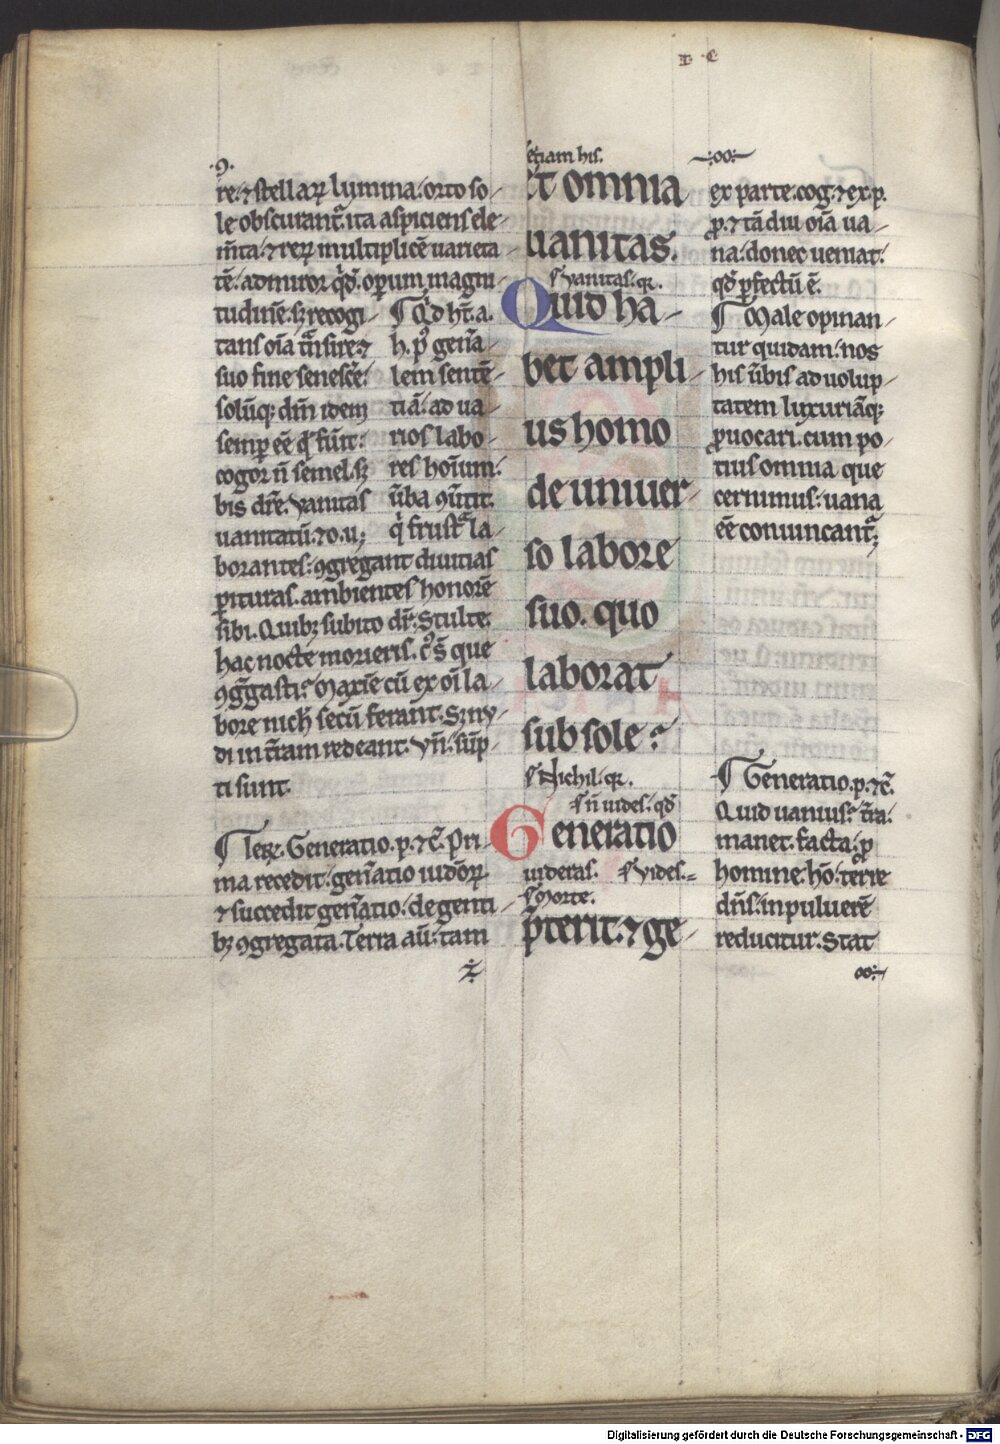 .9.
re. ⁊ stellaꝝ lumina. orto so-
le obscurant᷑. ita aspiciens ele-
m̄ta. ⁊ reꝝ multiplicē uarieta-
tē. admiror q̇dē. oꝑum magni-
tudinē. sꝫ recogi-
tans oīa t̄nsire. ⁊
suo fine senescē.
solūqꝫ dm̄ idem
semꝑ eē qđ fūit.
cogor n̄ semel. sꝫ
bis dr̄e. Vanitas
uanitatū. ⁊ o. u;
¶ Qđ ht̄. a.
h. pꝰ genāa-
lem sentē-
tiā. ad ua-
rios labo-
res hoīum.
ūba 9ūtit.
q̇ frustᷓ la-
borantes. 9gregant diuitias
ꝑituras. ambientes honorē
sibi. Quibꝫ subito dr̄. Stulte.
hac nocte morieris. cꝰ s̄ que
9ḡgasti? Maxīe cū ex oī la-
bore nichˡ secū ferant. Sꝫ nu-
di in t̄ram redeant. Vn̄. sūp-
ti sunt.
¶ Generatio. p. ⁊c̄. Pri-
ma recedit. gen̄atio iudōꝝ.
⁊ succedit gen̄atio. de genti-
bꝫ 9gregata. Terra aū. tam
etiam his.
et omnia
uanitas.
s. Vanitas. qr.
Quid ha-
bet ampli-
us homo
de uniuer-
so labore
suo. quo
laborat
sub sole?
s. Nichil. qr.
s. n̄ uides. qđ
Generatio
uideras. s. Vides.=
s. Morte.
p̄terit. ⁊ ge-
-:oo:-
ex parte. cog. ⁊ ex. p.
ꝓ. ⁊ tādiu oīa ua-
na. donec ueniat.
qđ ꝑfectū ē.
¶ Male opinan-
tur quidam. nos
his ūbis ad uolup-
tatem luxuriāqꝫ
ꝓuocari. cum po-
tius omnia que
cernimus. uana
eē conuincant᷑;
¶ Generatio. p. ⁊c̄.
Quid uanius? t̄ra.
manet. facta. ꝓ
homine. hō. terre
dn̄s. in puluerē
reducitur. Stat
oo:-
Digitalisierung gefördert durch die Deutsche Forschungsgemeinschaft - DFG